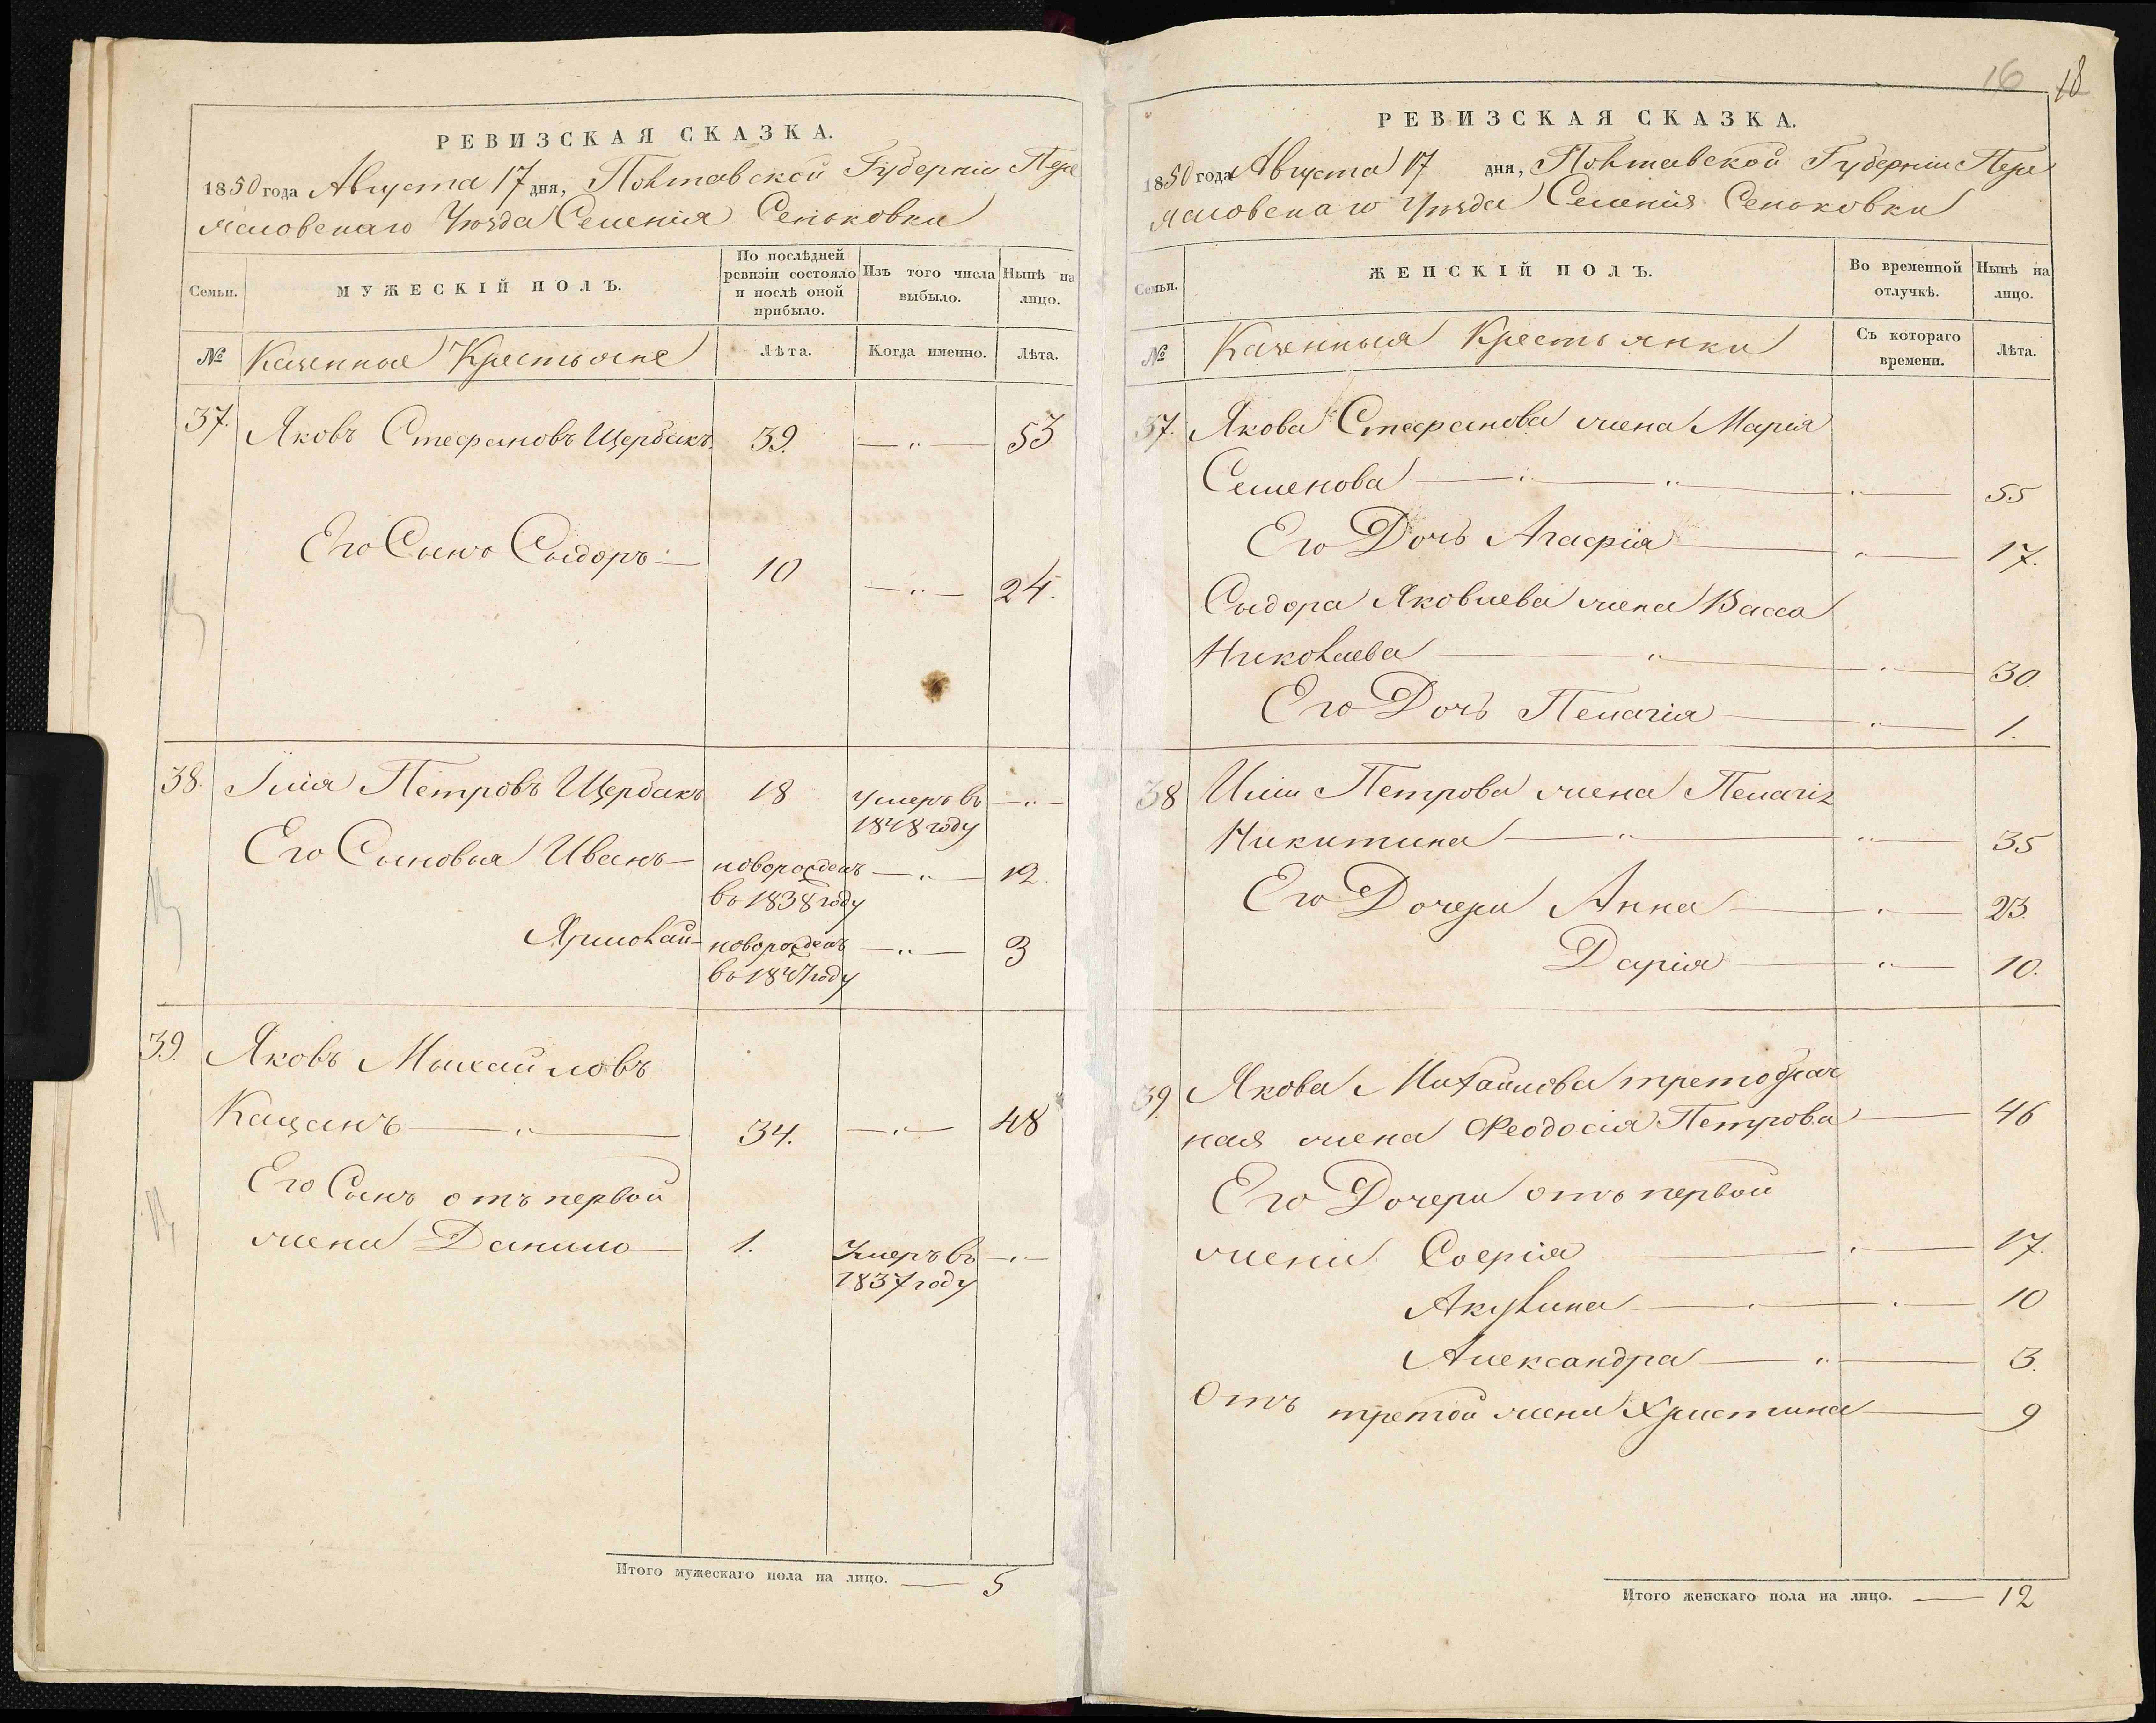 РЕВИЗСКАЯ СКАЗКА.
1850 года Августа 17 дня, Полтавской Губерніи Пере
яславскаго Уѣзда Селенія Сеньковки
Семьи.
МУЖЕСКІЙ ПОЛЪ.
По послѣдней
ревизіи состояло
и послѣ оной
прибыло.
Изъ того числа
выбыло.
Нынѣ на
лицо.
№ Казенные Крестьяне
Лѣта.
Когда именно.
Лѣта.
37. Яковъ Стефановъ Щербакъ 39. —"— 53
Его Сынъ Сыдоръ — 10 —"— 24.
38. Илія Петровъ Щербакъ 18 Умеръ въ —"—
1848 году
Его Сыновья Иванъ — новорожденъ —"— 12.
въ 1838 году
Ярмолай — новорожденъ —"— 3
въ 1847 году
39. Яковъ Мыхайловъ
Кацанъ —"— 34. —"— 48
Его Сынъ отъ первой
жены Данило — 1. Умеръ въ —"—
1837 году
Итого мужескаго пола на лицо. — 5
16 18
РЕВИЗСКАЯ СКАЗКА.
1850 года Августа 17 дня, Полтавской Губерніи Пере
яславскаго Уѣзда Селенія Сеньковки
Семьи.
ЖЕНСКІЙ ПОЛЪ.
Во временной
отлучкѣ.
Нынѣ на
лицо.
№ Казенныя Крестьянки
Съ котораго
времени.
Лѣта.
37. Якова Стефанова жена Марія
Семенова —"—"— "— 55
Его Дочь Агафія — "— 17.
Сыдора Яковлева жена Васса
Николаева —"— "— 30.
Его Дочь Пелагія — "— 1.
38 Иліи Петрова жена Пелагія
Никитина —"— "— 35
Его Дочери Анна — "— 23.
Дарія — "— 10.
39. Якова Михайлова третобрач
ная жена Феодосія Петрова — 46
Его Дочери отъ первой
жены Софія — "— 17.
Акулина — "— 10
Александра —"— 3.
Отъ третой жены Христина — 9
Итого женскаго пола на лицо. — 12